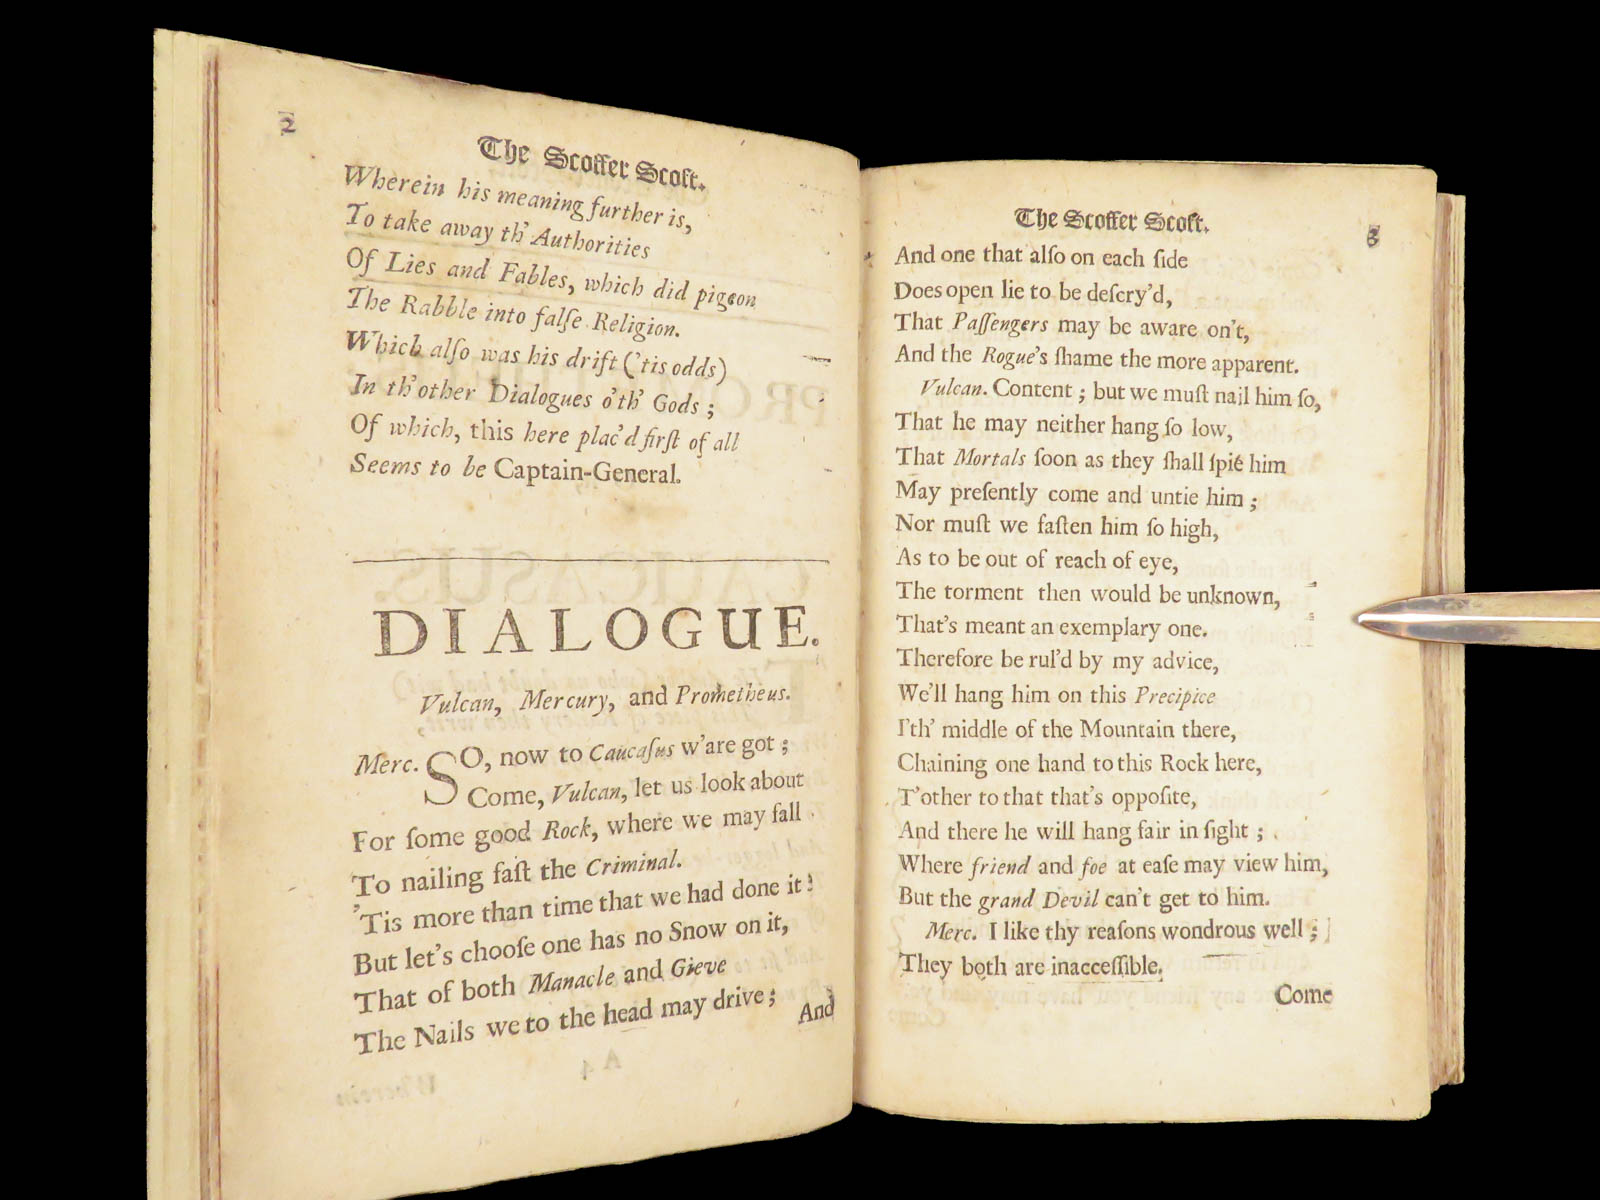 2
The Scoffer Scoft.
Wherein his meaning further is,
To take away th' Authorities
Of Lies and Fables, which did pigeon
The Rabble into falſe Religion.
Which alſo was his drift ('tis odds)
In th' other Dialogues o'th' Gods ;
Of which, this here plac'd firſt of all
Seems to be Captain-General.
DIALOGUE.
Vulcan, Mercury, and Prometheus.
Merc. SO, now to Caucaſus w'are got ;
Come, Vulcan, let us look about
For ſome good Rock, where we may fall
To nailing faſt the Criminal.
'Tis more than time that we had done it :
But let's chooſe one has no Snow on it,
That of both Manacle and Gieve
The Nails we to the head may drive ;
And
The Scoffer Scoft.
3
And one that alſo on each ſide
Does open lie to be deſcry'd,
That Paſſengers may be aware on't,
And the Rogue's ſhame the more apparent.
Vulcan. Content ; but we muſt nail him ſo,
That he may neither hang ſo low,
That Mortals ſoon as they ſhall ſpie him
May preſently come and untie him ;
Nor muſt we faſten him ſo high,
As to be out of reach of eye,
The torment then would be unknown,
That's meant an exemplary one.
Therefore be rul'd by my advice,
We'll hang him on this Precipice
I'th' middle of the Mountain there,
Chaining one hand to this Rock here,
T'other to that that's oppoſite,
And there he will hang fair in ſight ;
Where friend and foe at eaſe may view him,
But the grand Devil can't get to him.
Merc. I like thy reaſons wondrous well ;
They both are inacceſſible.
Come